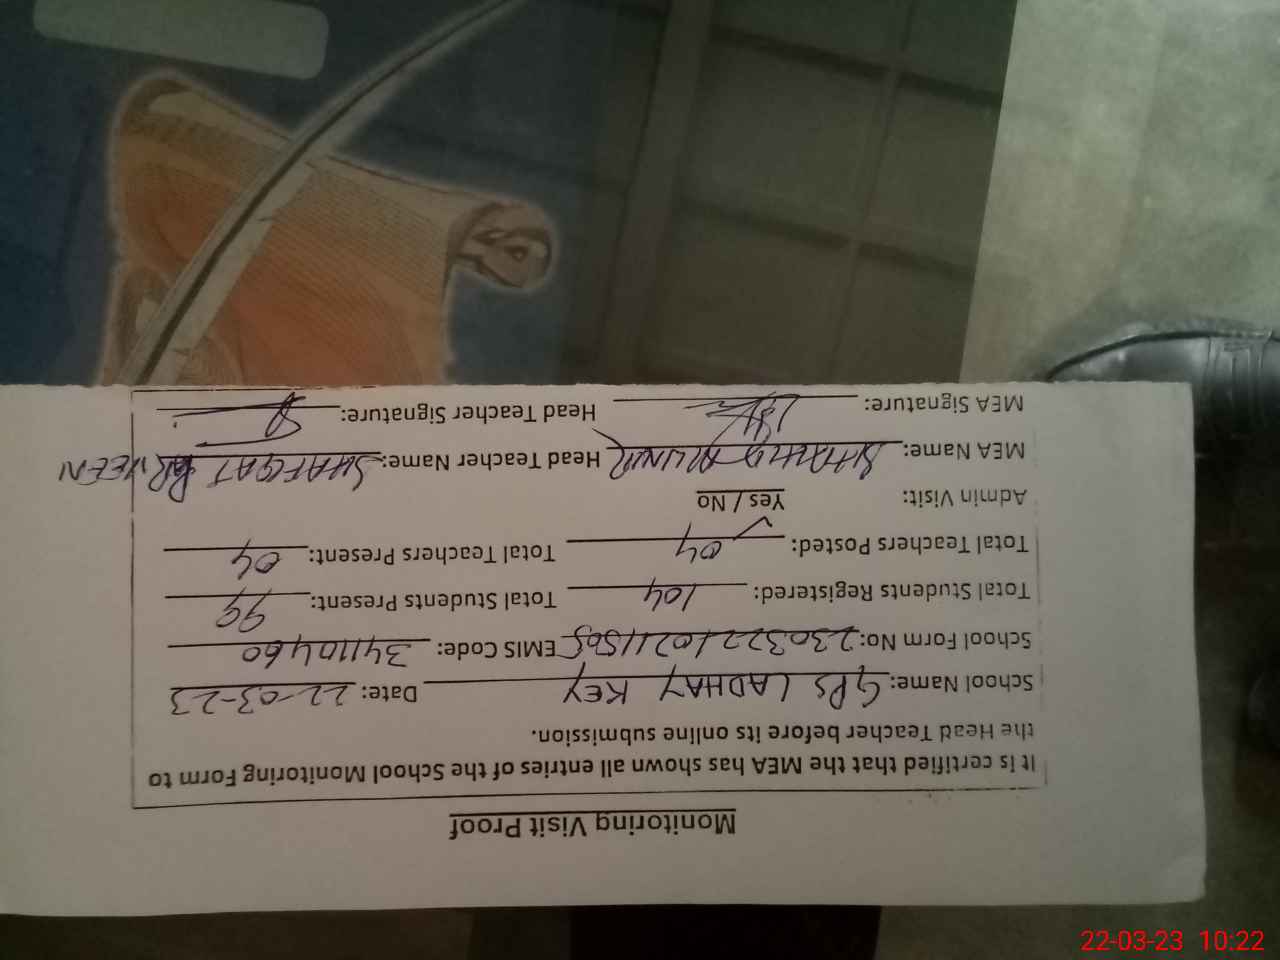 Monitoring Visit Proof
It is certified that the MEA has shown all entries of the School Monitoring Form to
the Head Teacher before its online submission.
School Name: GPS LADHAY KEY Date: 22-03-23
School Form No: EMIS Code: 34110460
Total Students Registered: 104 Total Students Present: 99
Total Teachers Posted: 04 Total Teachers Present: 04
Admin Visit: Yes / No
MEA Name: MUNIR Head Teacher Name: SHAFQAT PARVEEN
MEA Signature: Head Teacher Signature:
22-03-23 10:22